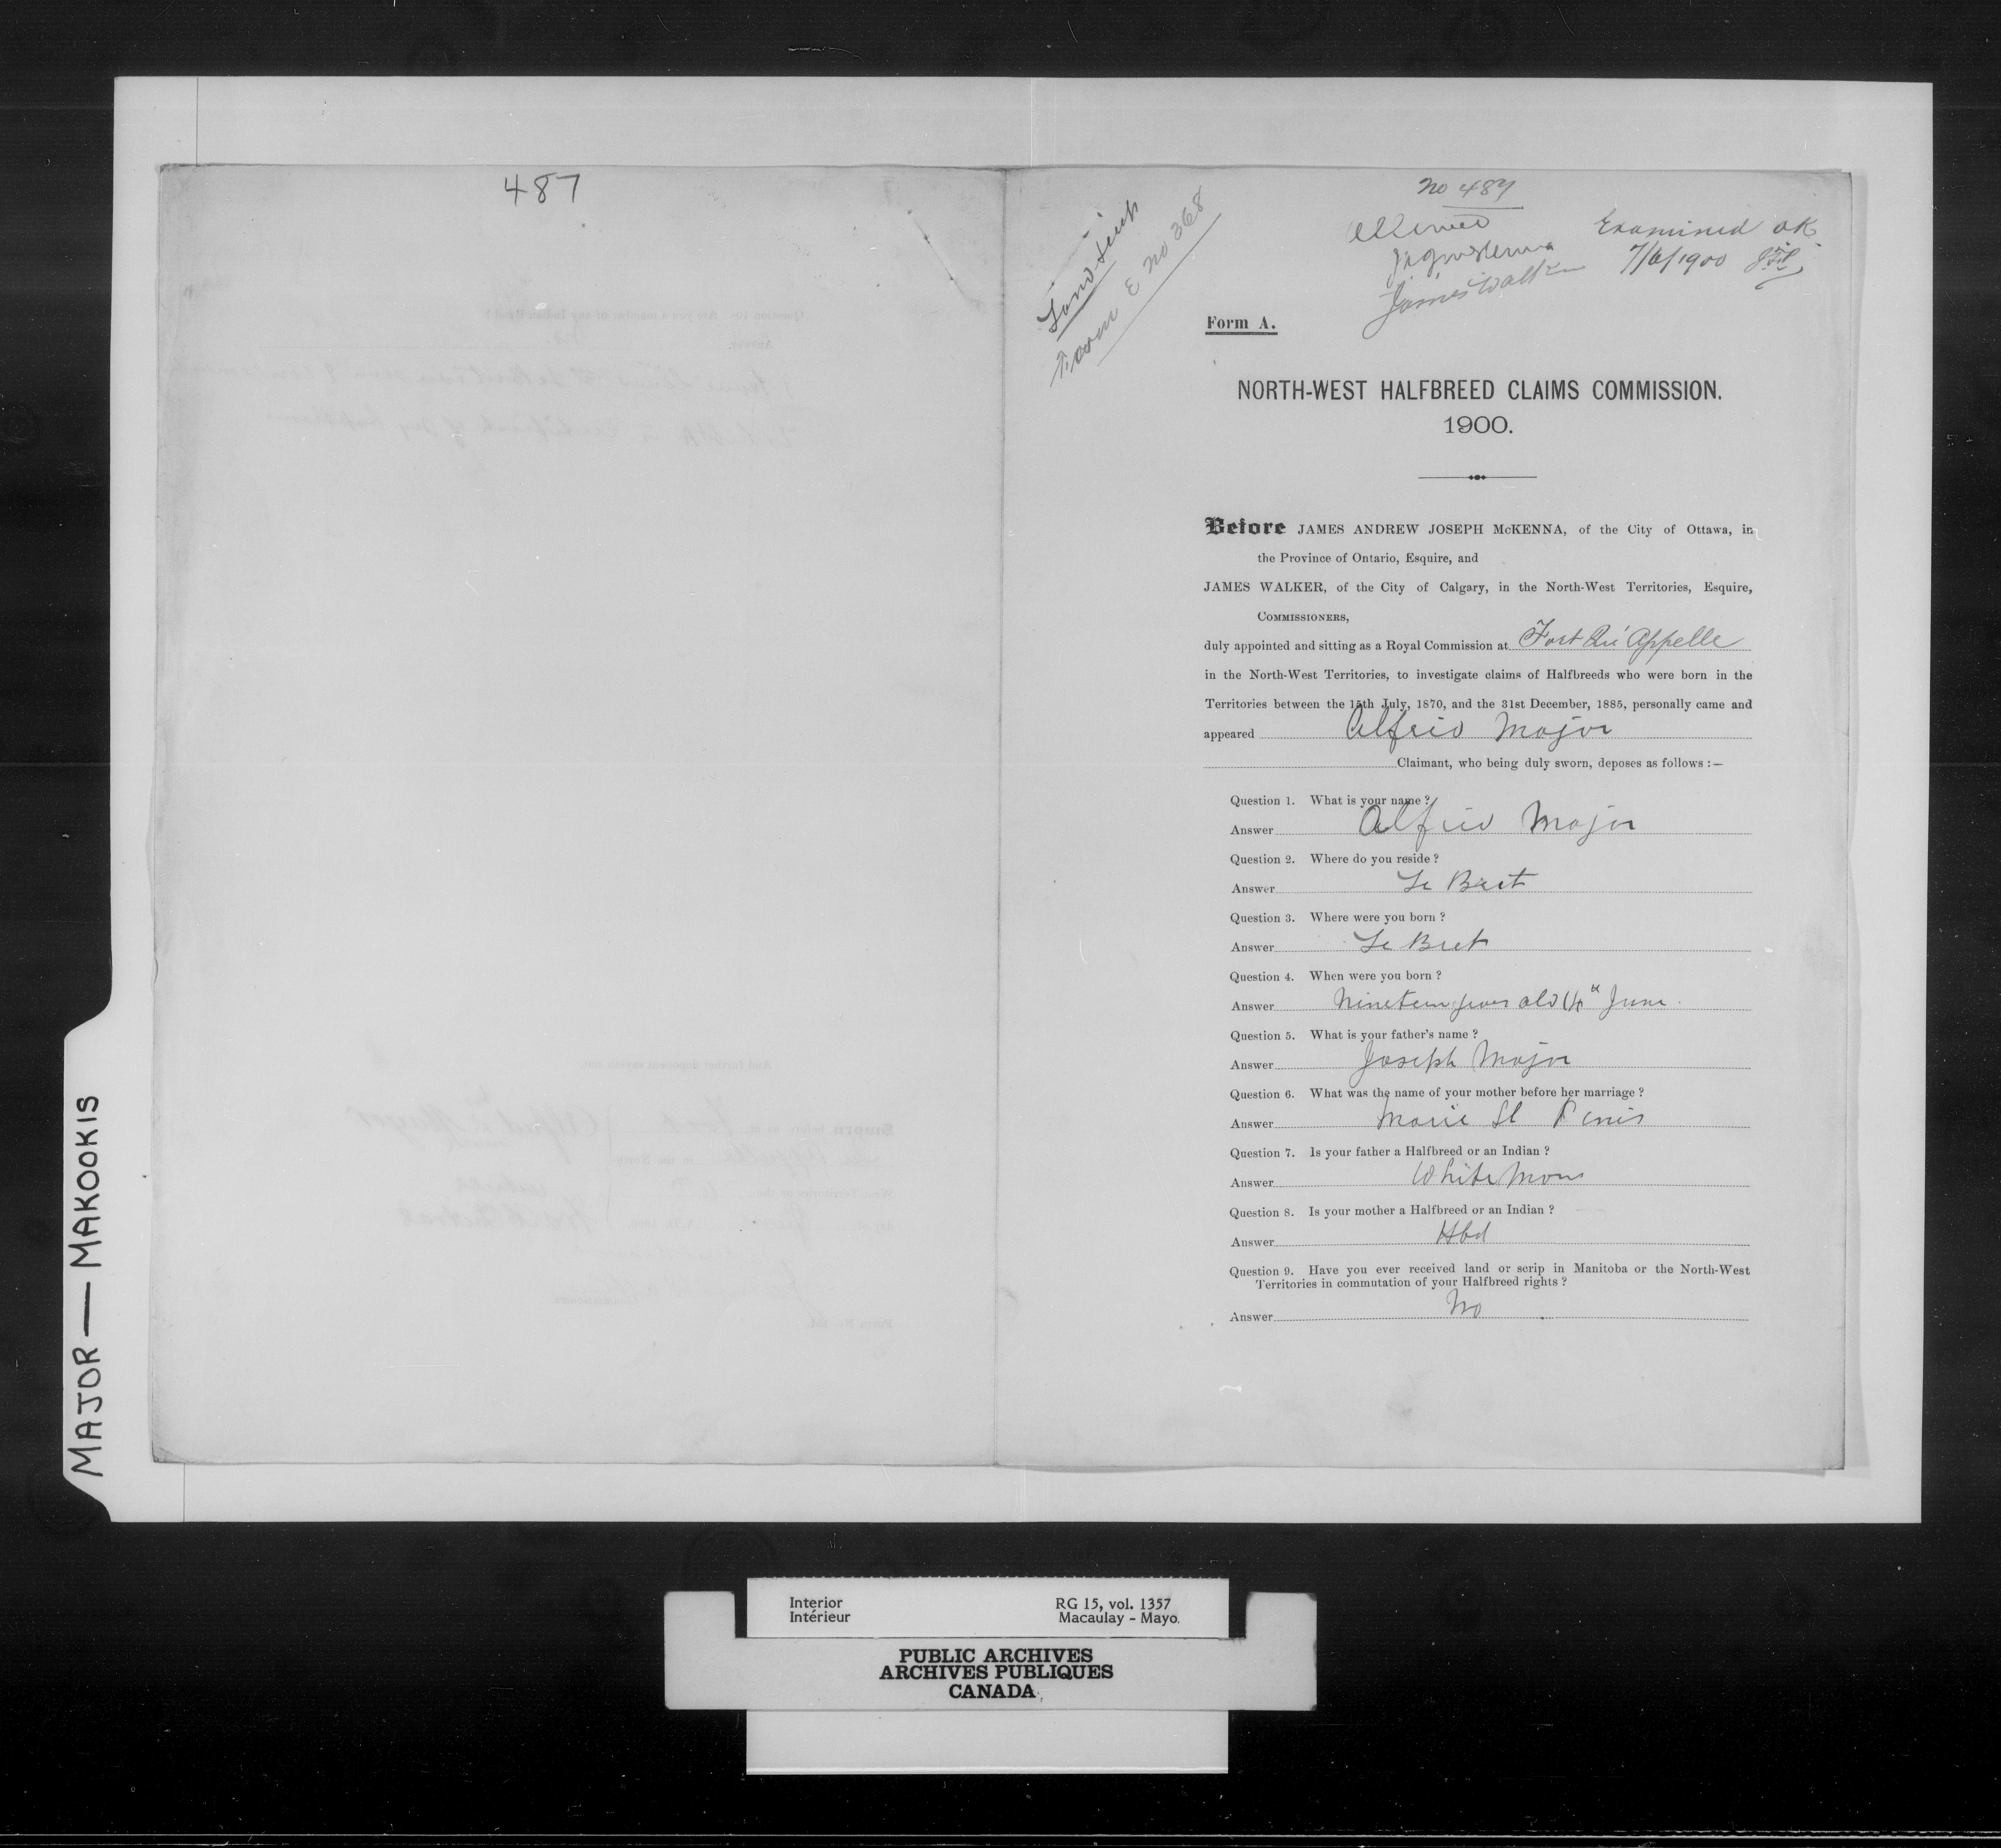 487
Land Scrip
Form E no 368
No 487
Allowed
J A J McKenna
James Walker
Examined OK
7/6/1900
Form A.
NORTH-WEST HALFBREED CLAIMS COMMISSION.
1900.
Before JAMES ANDREW JOSEPH McKENNA, of the City of Ottawa, in
the Province of Ontario, Esquire, and
JAMES WALKER, of the City of Calgary, in the North-West Territories, Esquire,
COMMISSIONERS,
duly appointed and sitting as a Royal Commission at Fort Qu'Appelle
in the North-West Territories, to investigate claims of Halfbreeds who were born in the
Territories between the 15th July, 1870, and the 31st December, 1885, personally came and
appeared Alfred Major
Claimant, who being duly sworn, deposes as follows :—
Question 1. What is your name ?
Answer Alfred Major
Question 2. Where do you reside ?
Answer Le Bret
Question 3. Where were you born ?
Answer Le Bret
Question 4. When were you born ?
Answer Nineteen years old 4th June
Question 5. What is your father's name ?
Answer Joseph Major
Question 6. What was the name of your mother before her marriage ?
Answer Marie St Denis
Question 7. Is your father a Halfbreed or an Indian ?
Answer White Man
Question 8. Is your mother a Halfbreed or an Indian ?
Answer Hbd
Question 9. Have you ever received land or scrip in Manitoba or the North-West
Territories in commutation of your Halfbreed rights ?
Answer No
MAJOR — MAKOOKIS
Interior
Intérieur
RG 15, vol. 1357
Macaulay - Mayo.
PUBLIC ARCHIVES
ARCHIVES PUBLIQUES
CANADA